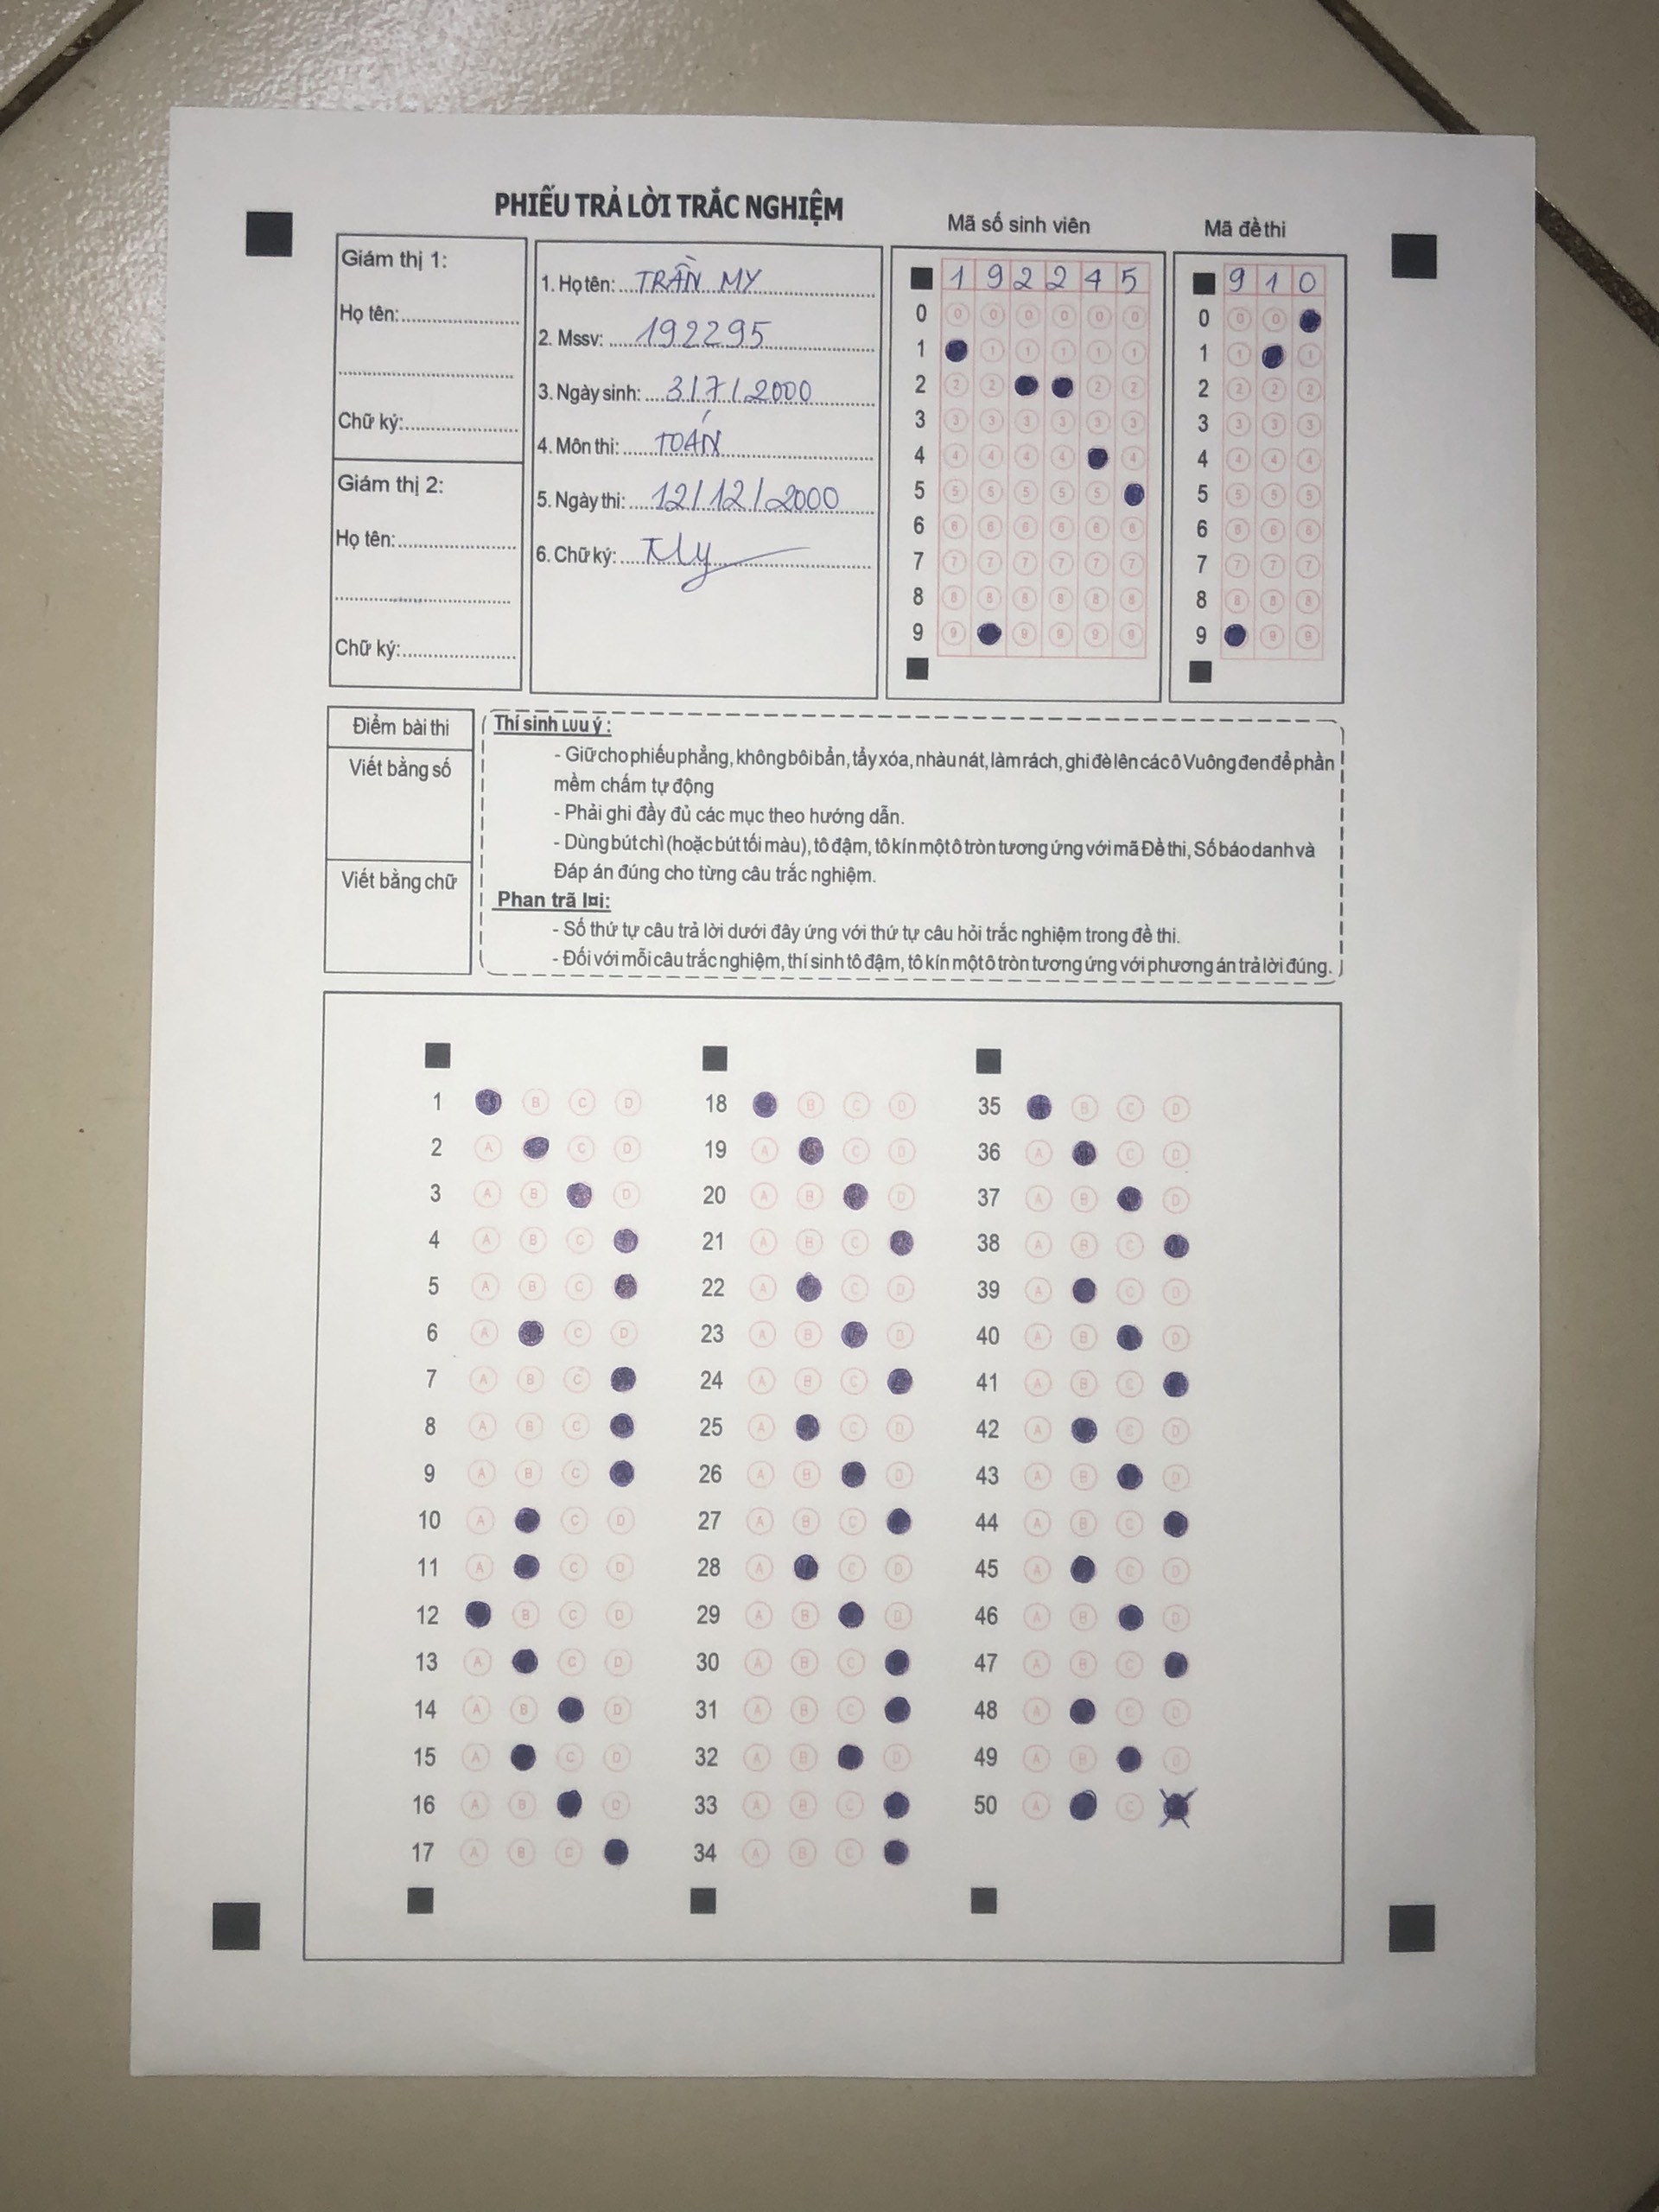 PHIẾU TRẢ LỜI TRẮC NGHIỆM
Mã số sinh viên
Mã đề thi
Giám thị 1:
Họ tên:
Chữ ký:
Giám thị 2:
Họ tên:
Chữ ký:
1. Họ tên: TRẦN MY
2. Mssv: 192295
3. Ngày sinh: 3/7/2000
4. Môn thi: TOÁN
5. Ngày thi: 12/12/2000
6. Chữ ký: TMy
1 9 2 2 4 5
0 0 0 0 0 0 0
1 1 1 1 1 1
2 2 2 2 2
3 3 3 3 3 3 3
4 4 4 4 4 4
5 5 5 5 5 5
6 6 6 6 6 6 6
7 7 7 7 7 7 7
8 8 8 8 8 8 8
9 9 9 9 9 9
9 1 0
0 0 0
1 1 1
2 2 2 2
3 3 3 3
4 4 4 4
5 5 5 5
6 6 6 6
7 7 7 7
8 8 8 8
9 9 9
Điểm bài thi
Viết bằng số
Viết bằng chữ
Thí sinh LƯU ý :
- Giữ cho phiếu phẳng, không bôi bẩn, tẩy xóa, nhàu nát, làm rách, ghi đè lên các ô Vuông đen để phần
mềm chấm tự động
- Phải ghi đầy đủ các mục theo hướng dẫn.
- Dùng bút chì (hoặc bút tối màu), tô đậm, tô kín một ô tròn tương ứng với mã Đề thi, Số báo danh và
Đáp án đúng cho từng câu trắc nghiệm.
Phan trã l¤i:
- Số thứ tự câu trả lời dưới đây ứng với thứ tự câu hỏi trắc nghiệm trong đề thi.
- Đối với mỗi câu trắc nghiệm, thí sinh tô đậm, tô kín một ô tròn tương ứng với phương án trả lời đúng.
1 B C D
2 A C D
3 A B D
4 A B C
5 A B C
6 A C D
7 A B C
8 A B C
9 A B C
10 A C D
11 A C D
12 B C D
13 A C D
14 A B D
15 A C D
16 A B D
17 A B C
18 B C D
19 A C D
20 A B D
21 A B C
22 A C D
23 A B D
24 A B C
25 A C D
26 A B D
27 A B C
28 A C D
29 A B D
30 A B C
31 A B C
32 A B D
33 A B C
34 A B C
35 B C D
36 A C D
37 A B D
38 A B C
39 A C D
40 A B D
41 A B C
42 A C D
43 A B D
44 A B C
45 A C D
46 A B D
47 A B C
48 A C D
49 A B D
50 A C